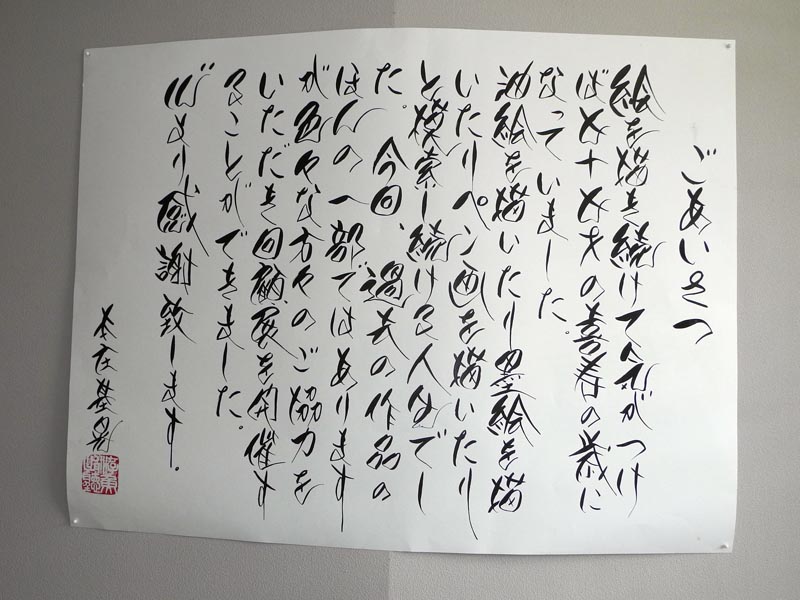 ごあいさつ
絵を描き続けて気がつけ
ば七十七才の喜寿の歳に
なっていました。
油絵を描いたり墨絵を描
いたりペン画を描いたり
と模索し続ける人生でし
た。今回、過去の作品の
ほんの一部ではあります
が色々な方々のご協力を
いただき回顧展を開催す
ることができました。
心より感謝致します。
本庄基晃